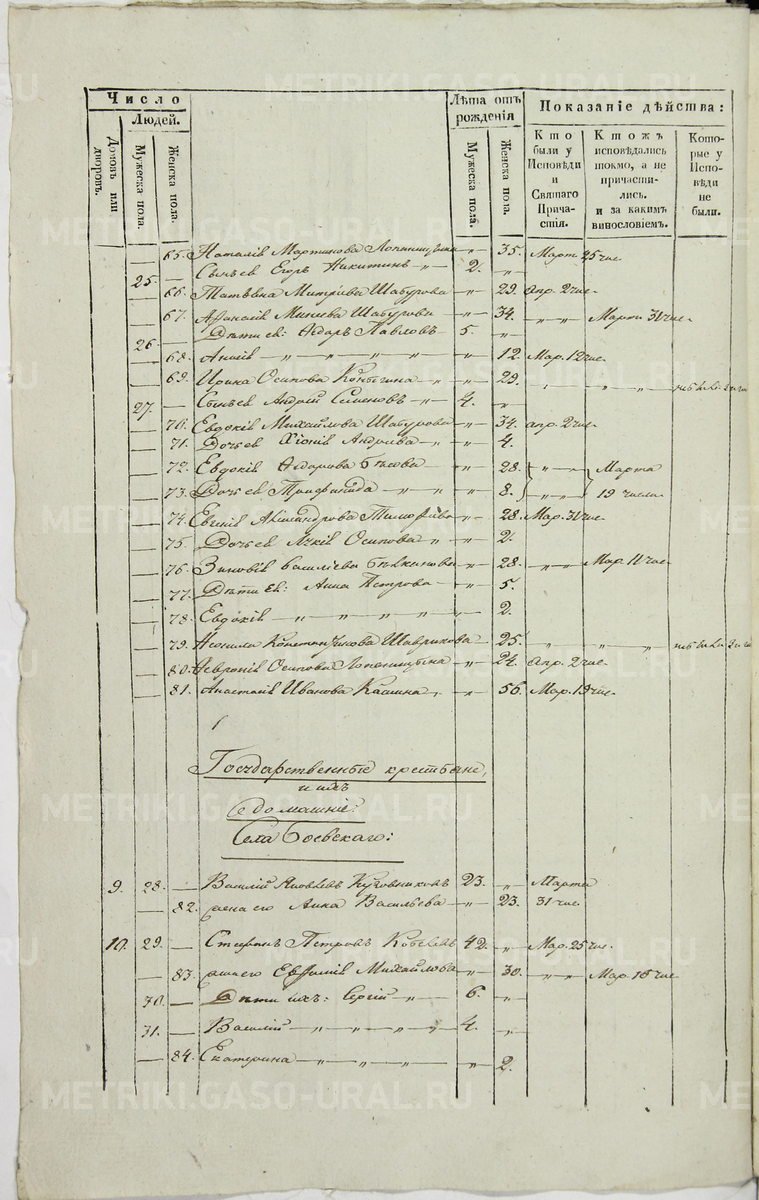 Число
Людей.
Домовъ или дворовъ.
Мужеска пола.
Женска пола.
Лѣта отъ рожденія
Мужеска пола.
Женска пола.
Показаніе дѣйства:
Кто были у Исповѣди и Святаго Причастія.
Кто жъ исповѣдались токмо, а не причастились. и за какимъ винословіемъ.
Которые у Исповѣди не были.
65. Наталія Мартинова 35. Март 25 чис.
25. Сынъ ея Егоръ Никитинъ 2.
66. Татьяна Митрiева Шабурова 29. Апр. 2 чис.
67. Афанасія Минеева Шабурова 34. Марта 31 чис.
26. Дѣти ея: Ѳедоръ Павловъ 5.
68. 12. Мар. 12 чис.
69. Ирина Осипова 29.
27. Сынъ ея Андрей Семеновъ 4.
70. Евдокія Михайлова Шабурова 34. Апр. 2 чис.
71. Дочь ея Хіонія Андреева 4.
72. Евдокія Ѳедорова 28. Марта
73. Дочь ея 8. 19 числа
74. Евгенія Александрова 28. Мар. 31 чис.
75. Дочь ея Лукія Осипова 2.
76. Зиновія Василіева 28. Мар. 11 чис.
77. Дѣти ея: Анна Петрова 5.
78. Евдокія 2.
79. Неонила Константинова Шаврикова 25.
80. Февронія Осипова 24. Апр. 2 чис.
81. Анастасія Иванова Кашина 56. Мар. 19 чис.
Государственные крестьяне,
и ихъ
домашніе:
Села Боевскаго:
9. 28. Василій Яковлевъ 23. Марта
82. жена его Анна Васильева 23. 31 чис.
10. 29. Стефанъ Петровъ 42. Мар. 25 чис.
83. жена его Евфимія Михайлова 30. Мар. 18 чис.
30. Дѣти ихъ: Сергій 6.
31. Василій 4.
84. Екатерина 2.
METRIKI.GASO-URAL.RU